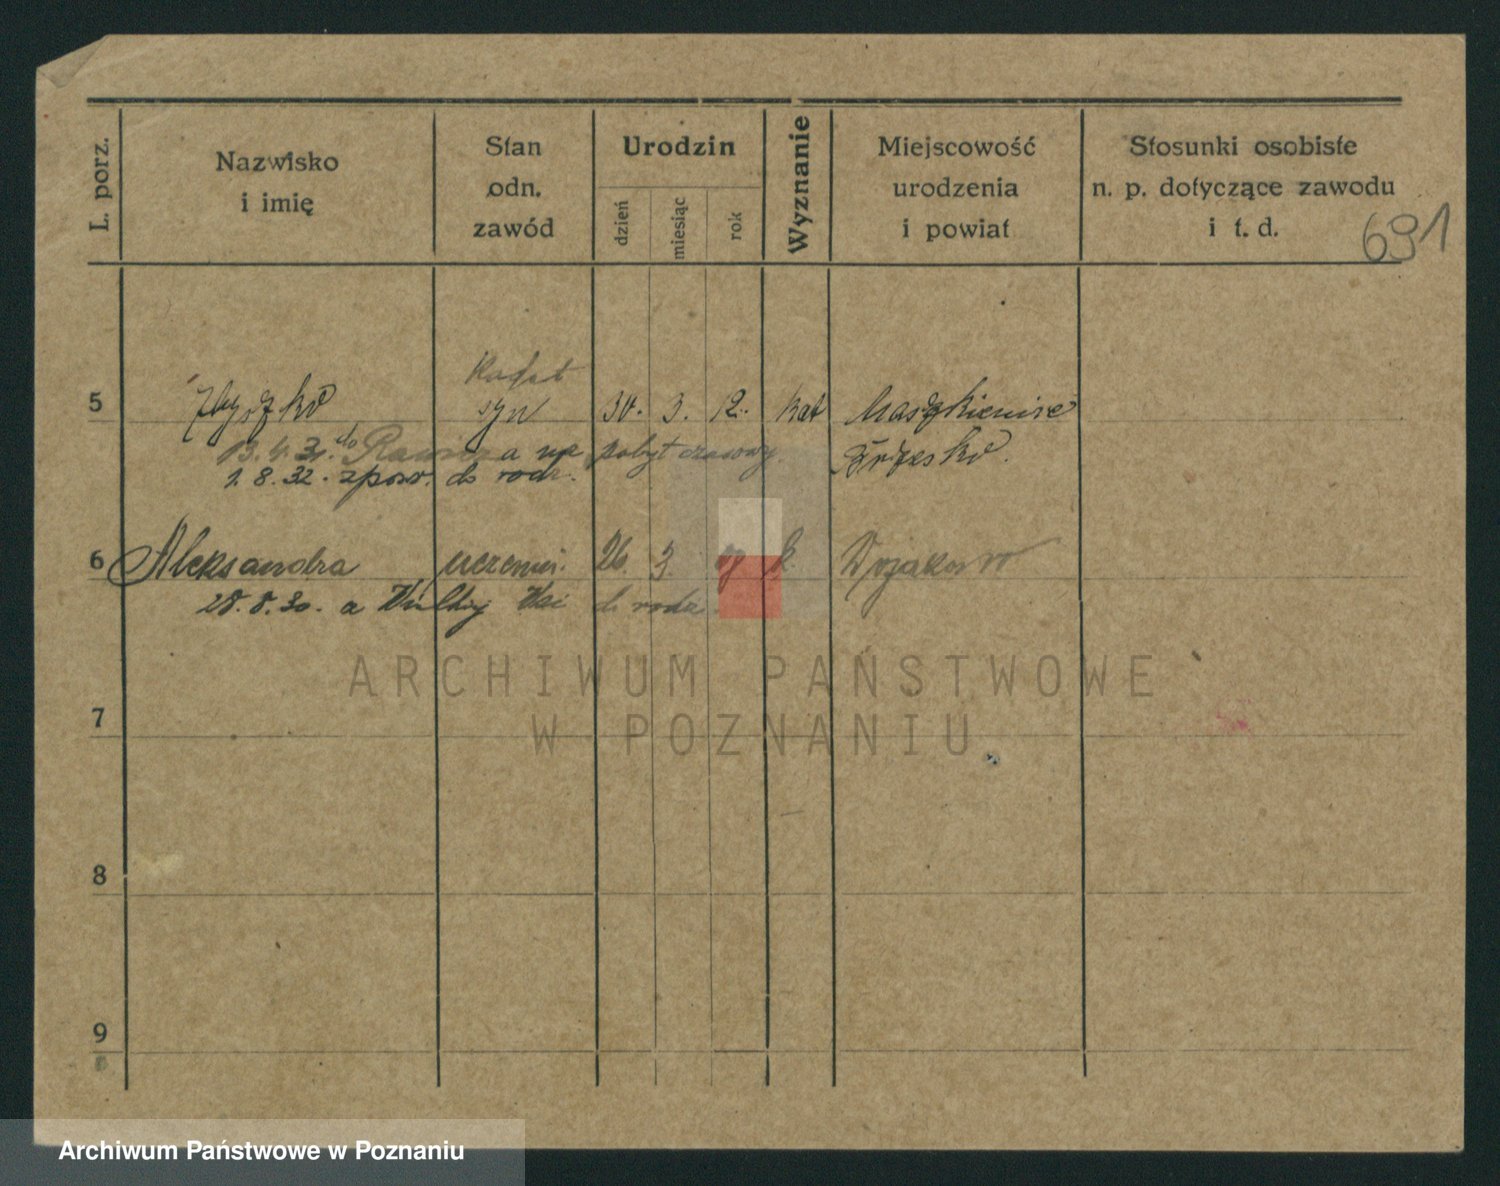 L. porz.
Nazwisko
i imię
Stan
odn.
zawód
Urodzin
dzień
miesiąc
rok
Wyznanie
Miejscowość
urodzenia
i powiat
Stosunki osobiste
n. p. dotyczące zawodu
i t. d.
691
Kadet
5 Zbyszko syn 30. 3. 12. kat Maszkienice
13.4.31. do Rawicza na pobyt czasowy. Brzesko.
1.8.32. zpow. do rodz.
6 Aleksandra uczenn. 26. 3. k.
28.8.30. z Wsi do rodz.
ARCHIWUM PAŃSTWOWE
W POZNANIU
7
8
9
Archiwum Państwowe w Poznaniu